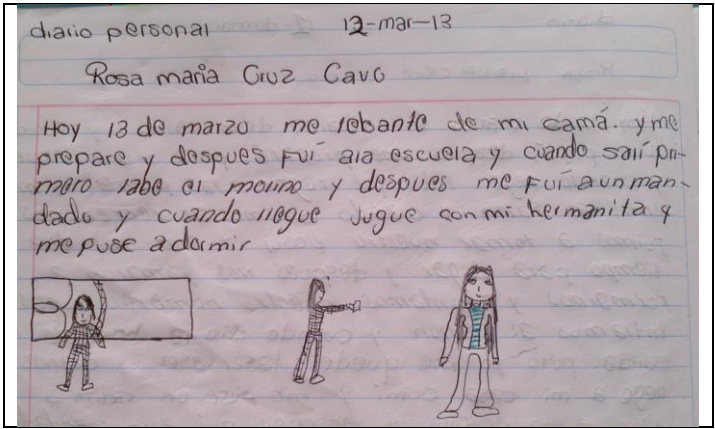 diario personal 13-mar-13
Rosa maria Cruz Cavo
Hoy 13 de marzo me lebante de mi camá. y me
prepare y despues Fuí ala escuela y cuando salí pri-
mero labe el molino y despues me Fuí a un man-
dado y cuando llegue Jugue con mi hermanita y
me puse a dormir